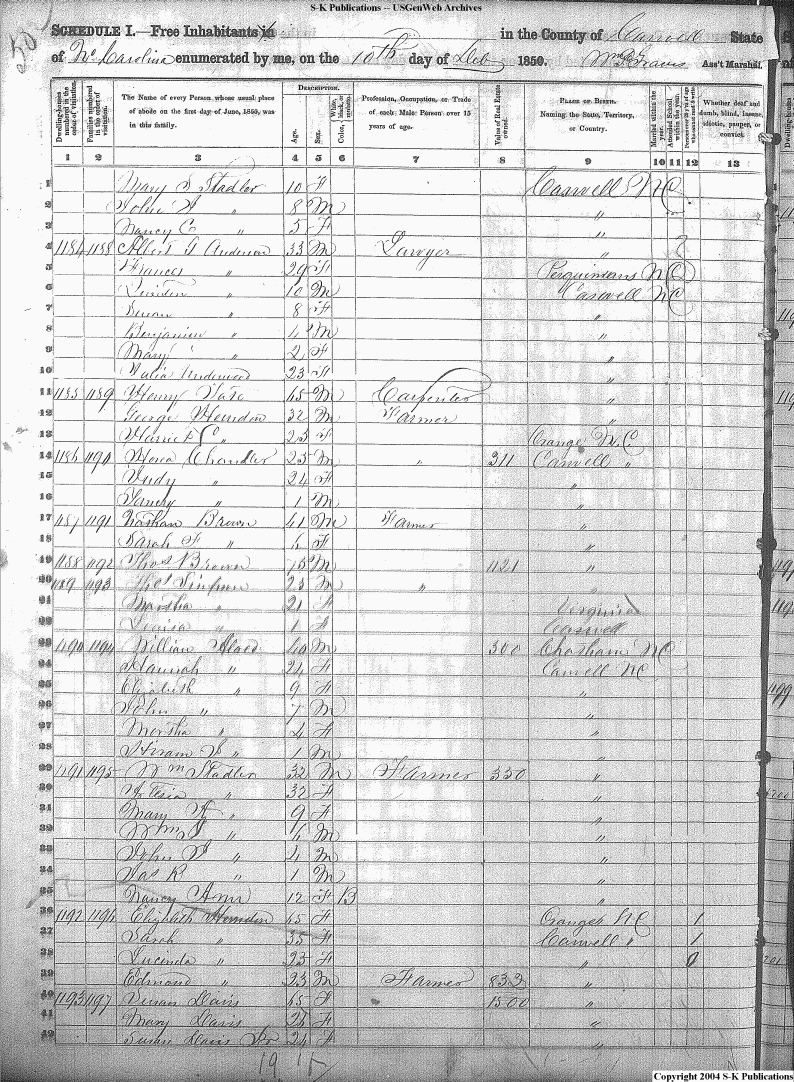 S-K Publications -- USGenWeb Archives
50
SCHEDULE I.—Free Inhabitants in in the County of Caswell State
of No Carolina enumerated by me, on the 10th day of Dec 1850. Wm Graves Ass't Marshal.
Dwelling-houses numbered in the order of visitation.
Families numbered in the order of visitation.
The Name of every Person whose usual place of abode on the first day of June, 1850, was in this family.
DESCRIPTION.
Age.
Sex.
White, black, or mulatto.
Color,
Profession, Occupation, or Trade of each Male Person over 15 years of age.
Value of Real Estate owned.
PLACE OF BIRTH. Naming the State, Territory, or Country.
Married within the year.
Attended School within the year.
Whether deaf and dumb, blind, insane, idiotic, pauper, or convict.
1 2 3 4 5 6 7 8 9 10 11 12 13
1 Mary S Stadler 10 F Caswell NC
2 John A " 8 M "
3 Nancy C " 5 F "
4 1184 1188 Albert G Anderson 33 M Lawyer "
5 Frances " 29 F Perquimans NC
6 Quinten " 10 M Caswell NC
7 Susan " 8 F "
8 Benjamin " 4 M "
9 Mary " 2 F "
10 Julia Underwood 23 F "
11 1185 1189 Henry Ware 45 M Carpenter "
12 George Herndon 32 M Farmer "
13 Harriet C " 23 F Orange N.C.
14 1186 1190 Hosea Chandler 25 M " 311 Caswell "
15 Judy " 24 F "
16 " 1 M "
17 1187 1191 Nathan Brown 41 M Farmer "
18 Sarah F " 6 F "
19 1188 1192 Thos Brown 75 M 1121 "
20 1189 1193 Thos Simpson 23 M " "
21 Martha " 21 F Virginia
22 Louisa " 1 F Caswell
23 1190 1194 William 40 M 300 Chatham NC
24 Hannah " 24 F Caswell NC
25 Elizabeth " 9 F "
26 John " 7 M "
27 Martha " 4 F "
28 Hiram S " 1 M "
29 1191 1195 Wm Stadler 32 M Farmer 350 "
30 " 32 F "
31 Mary A " 9 F "
32 Wm J " 6 M "
33 John " 4 M "
34 Jas R " 1 M "
35 Nancy Ann 12 F B "
36 1192 1196 Elizabeth Herndon 65 F Orange NC 1
37 Sarah " 35 F Caswell " 1
38 Lucenda " 25 F "
39 Edmond " 23 M Farmer 833 "
40 1193 1197 Susan Davis 65 F 1500 "
41 Mary Davis 26 F "
42 Susan Davis Jr 24 F "
19
Copyright 2004 S-K Publications